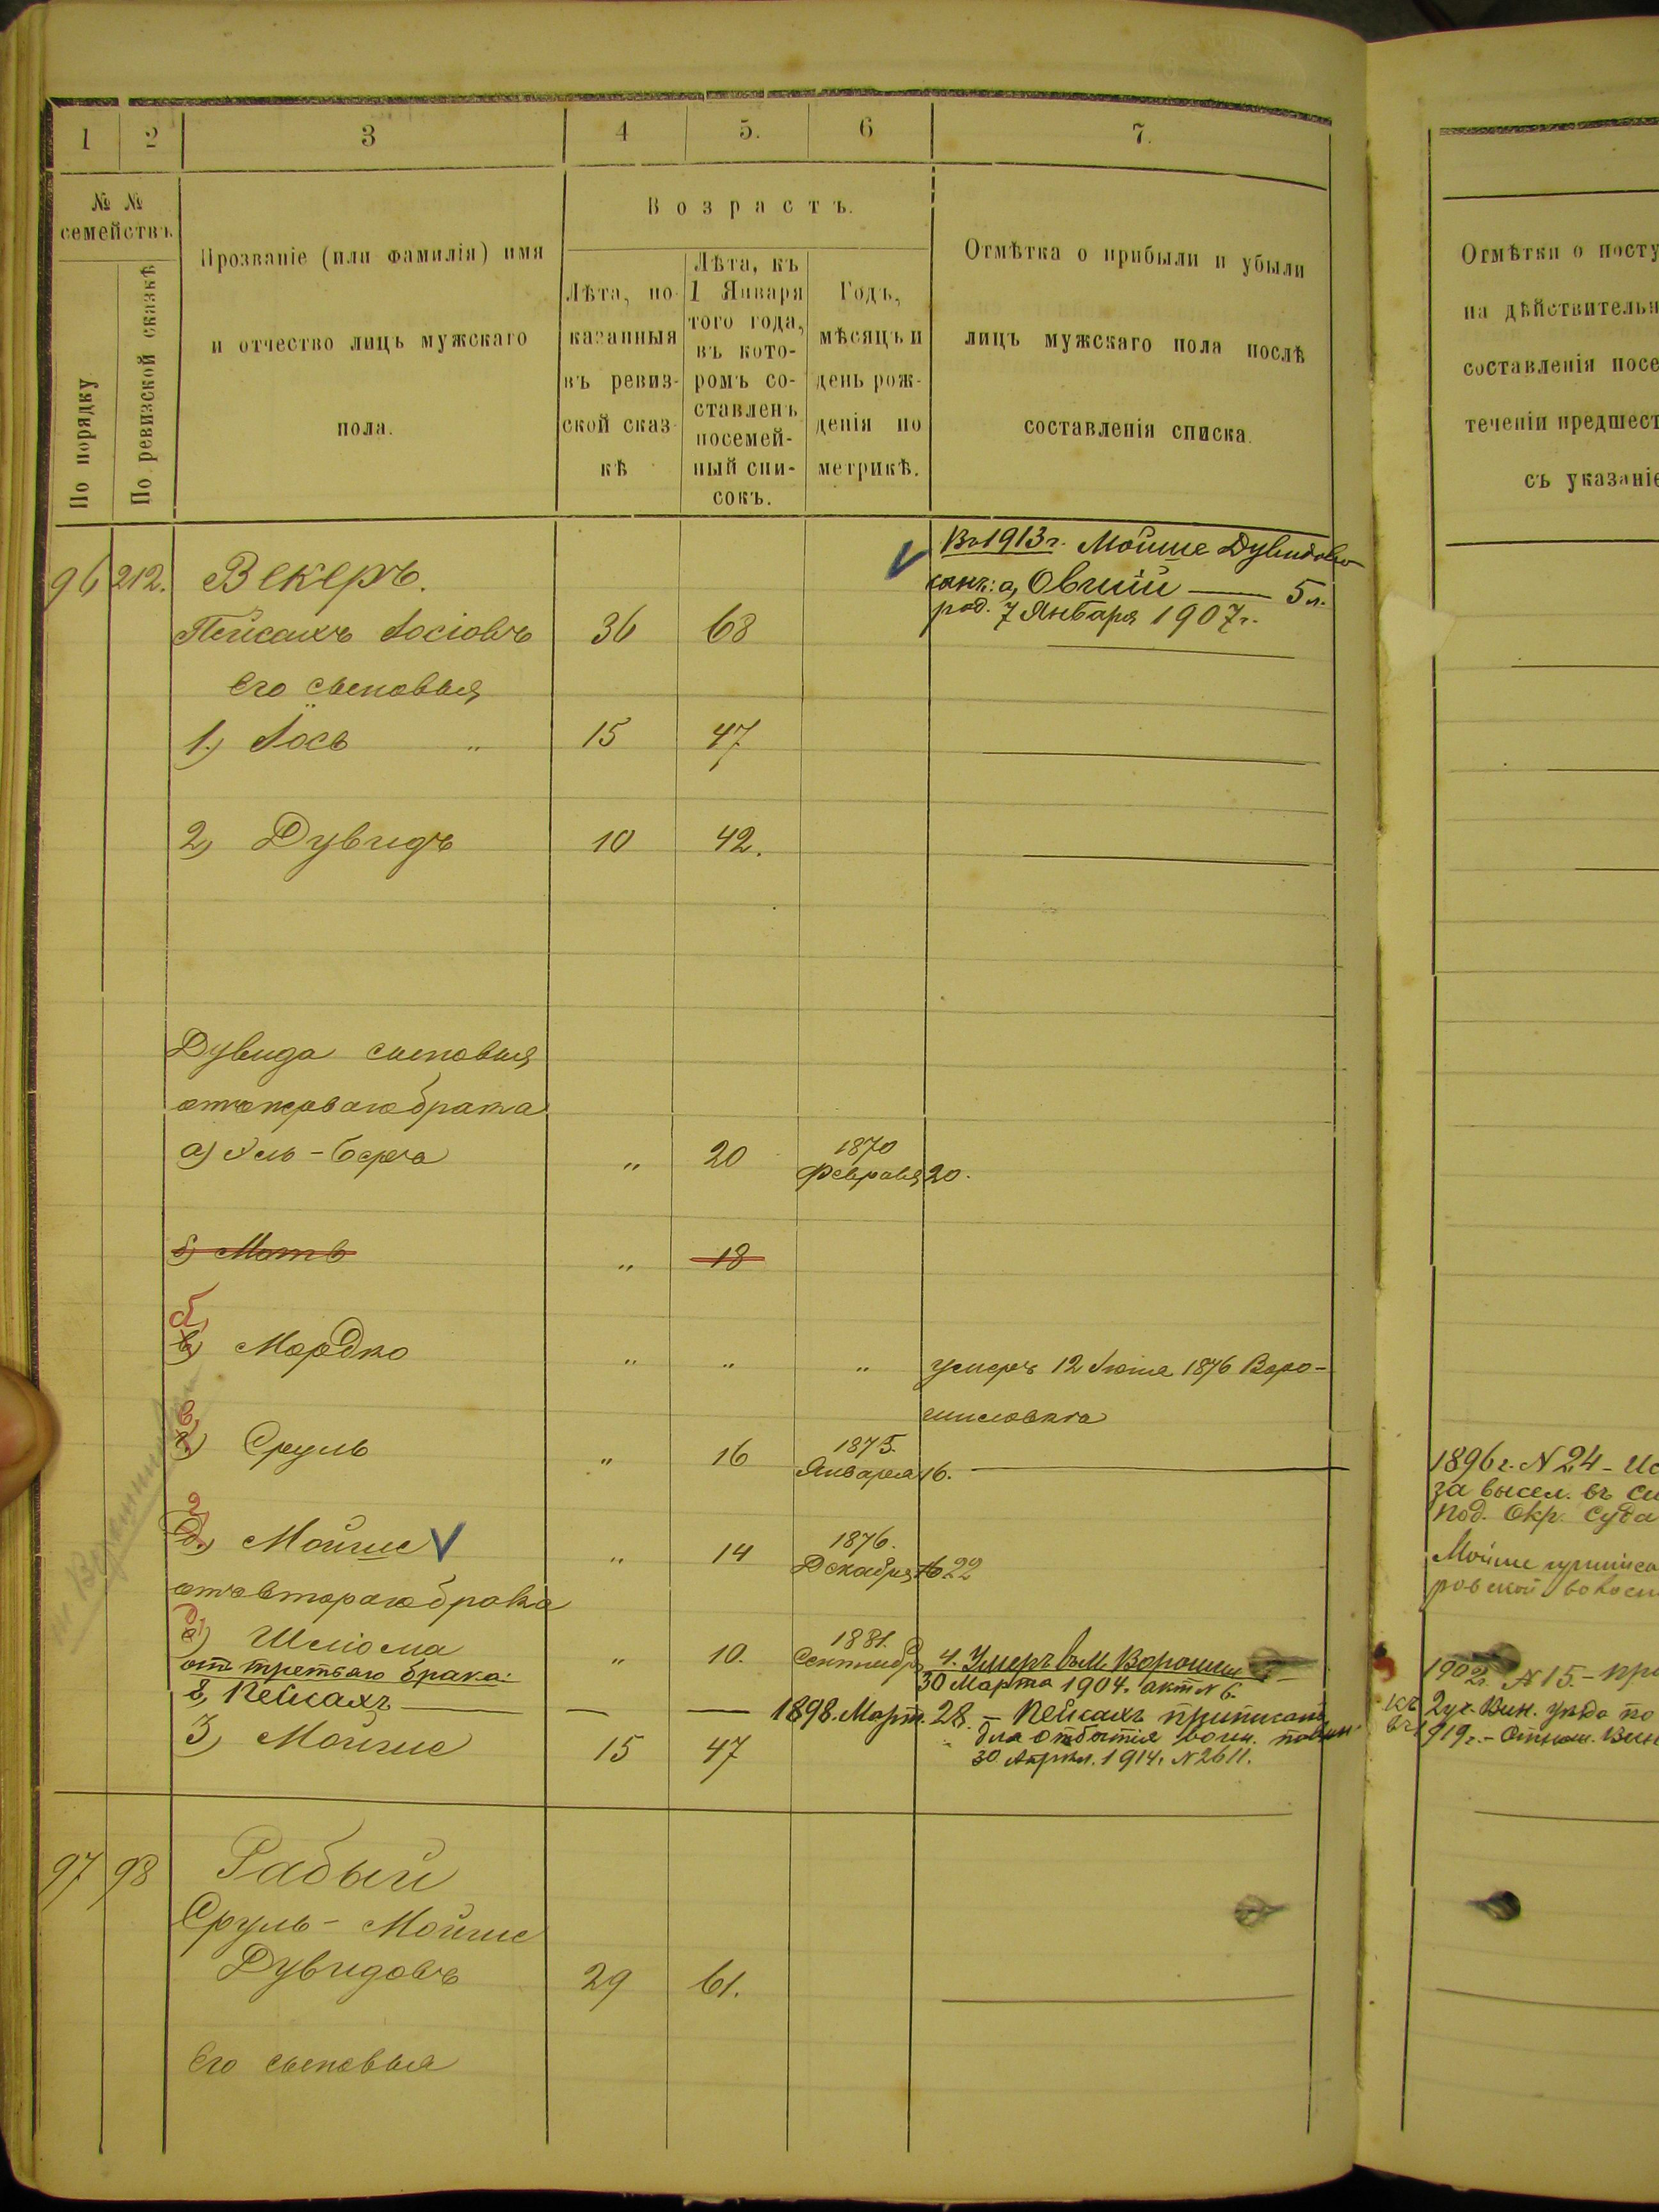 1 2 3 4 5. 6 7.
№ № семействъ.
По порядку
По ревизской сказкѣ
Прозваніе (или фамилія) имя
и отчество лицъ мужскаго
пола.
Возрастъ.
Лѣта, по-
казанныя
въ ревиз-
ской сказ-
кѣ
Лѣта, къ
1 Января
того года,
въ кото-
ромъ со-
ставленъ
посемей-
ный спи-
сокъ.
Годъ,
мѣсяцъ и
день рож-
денія по
метрикѣ.
Отмѣтка о прибыли и убыли
лицъ мужскаго пола послѣ
составленія списка.
Отмѣтки о посту
на дѣйствительн
составленія посе
теченіи предшест
съ указаніе
Въ 1913 г. Мойше Дувидовъ
сынъ: а, Овшій — 5 л.
род. 7 Января 1907 г.
96 212. Векеръ.
Пейсахъ Іосіовъ 36 68
Его сыновья
1.) Іось " 15 47
2) Дувидъ 10 42.
Дувида сыновья
отъ перваго брака
а) Уль-Берга " 20 1870
Февраля 20.
б) Мотъ " 18
б)
в) Мордко " " " умеръ 12 Іюня 1876 Воро-
шиловка
в)
г) Сруль " 16 1875.
Января 16.
г
д.) Мойше " 14 1876.
Декабря 16 22
отъ втораго брака
д)
а) Шліома " 10. 1881.
Сентября 4. Умеръ въ м. Ворошил
30 Марта 1904. акт № 6.
отъ третьяго брака:
Пейсахъ — — — 1898. Март. 28. – Пейсахъ приписанъ
для отбытія воин. повин
30 Апрел. 1914. № 2611.
3) Мойше 15 47
97 98 Рабый
Сруль-Мойше
Дувидовъ 29 61.
Его сыновья
1896 г. № 24 – Ис
за высел. въ Си
под. Окр. Суда
Мойше приписа
ровской волост
1902 г. № 15. – при
къ 2 уч. Вин. уѣзда по
919 г. – Отнош. Вин